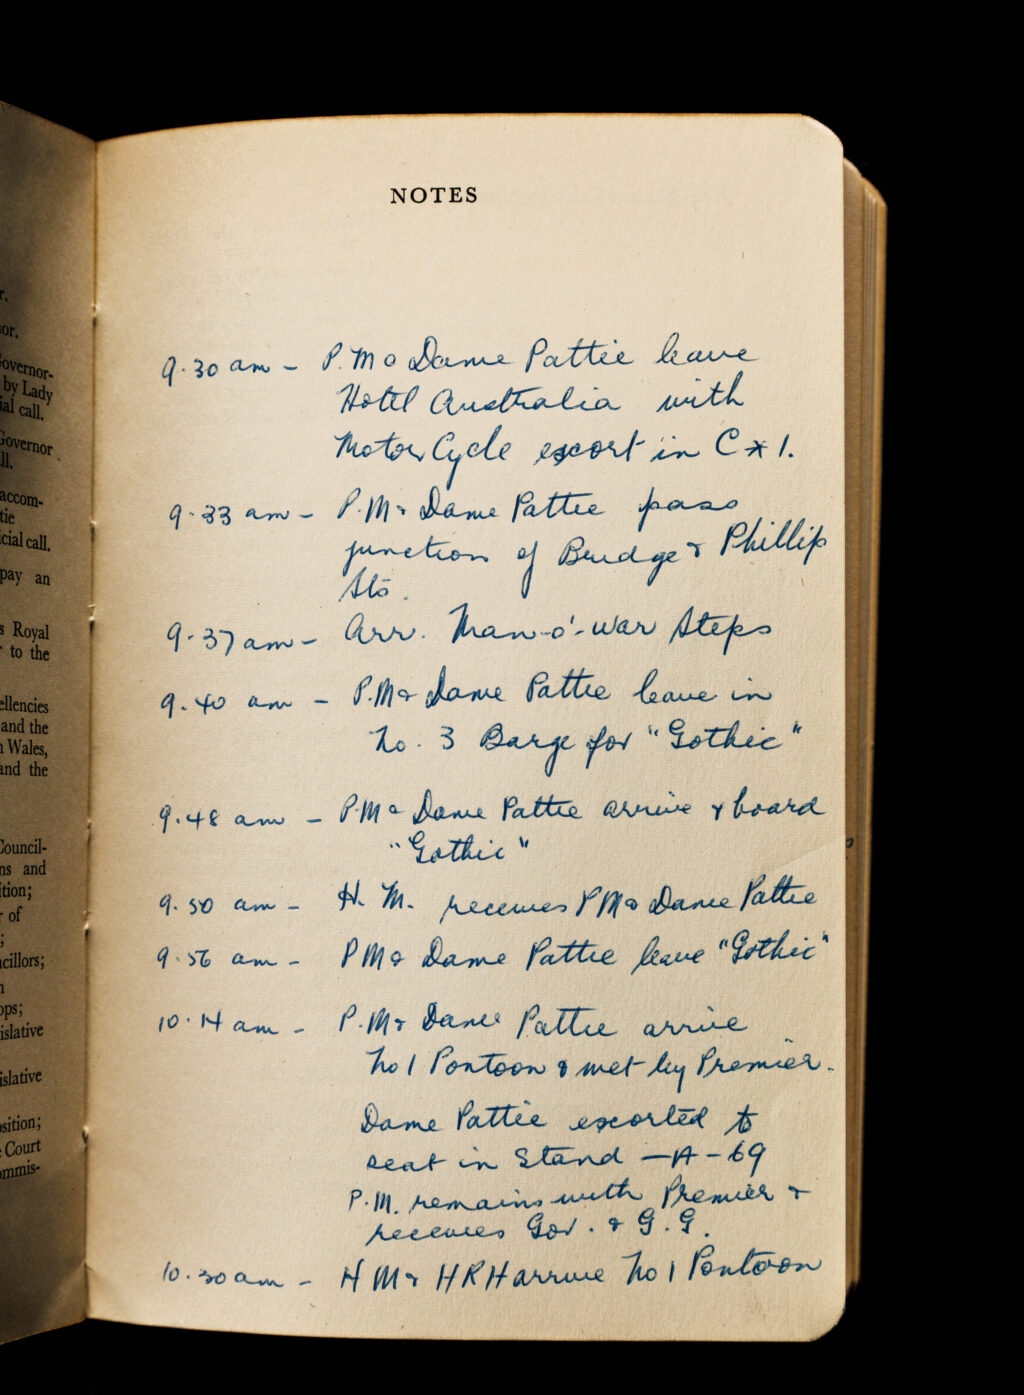 r.
or.
overnor-
by Lady
ial call.
Governor
ll.
accom-
tie
cial call.
pay an
s Royal
to the
ellencies
and the
Wales,
and the
Council-
ns and
ition;
of
;
cillors;
ops;
islative
islative
osition;
Court
ommis-
NOTES
9.30 am - P.M & Dame Pattie leave
Hotel Australia with
Motor Cycle escort in C*1.
9.33 am - P.M & Dame Pattie pass
junction of Bridge & Phillip
Sts.
9.37 am - Arr. Man-o'-war Steps
9.40 am - P.M & Dame Pattie leave in
No. 3 Barge for "Gothic"
9.48 am - P.M & Dame Pattie arrive & board
"Gothic"
9.50 am - H. M. receives PM & Dame Pattie
9.56 am - PM & Dame Pattie leave "Gothic"
10.14 am - P.M & Dame Pattie arrive
No 1 Pontoon & met by Premier.
Dame Pattie escorted to
seat in Stand - A - 69
P.M. remains with Premier &
receives Gov. & G.G.
10.30 am - H M & HRH arrive No 1 Pontoon